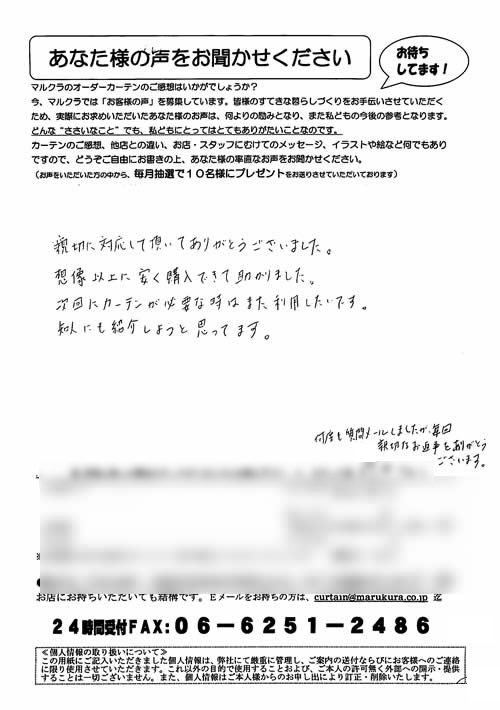 あなた様の声をお聞かせください
お待ち
してます！
マルクラのオーダーカーテンのご感想はいかがでしょうか？
今、マルクラでは「お客様の声」を募集しています。皆様のすてきな暮らしづくりをお手伝いさせていただく
ため、実際にお求めいただいたあなた様のお声は、何よりの励みとなり、また私どもの今後の参考となります。
どんな“ささいなこと”でも、私どもにとってはとてもありがたいことなのです。
カーテンのご感想、他店との違い、お店・スタッフにむけてのメッセージ、イラストや絵など何でもあり
ですので、どうぞご自由にお書きの上、あなた様の率直なお声をお聞かせください。
（お声をいただいた方の中から、毎月抽選で１０名様にプレゼントをお送りさせていただいております）
親切に対応して頂いてありがとうございました。
想像以上に安く購入できて助かりました。
次回にカーテンが必要な時はまた利用したいです。
知人にも紹介しようと思ってます。
何度も質問メールしましたが、毎回
親切なお返事をありがとう
ございます。
お店にお持ちいただいても結構です。Ｅメールをお持ちの方は、curtain@marukura.co.jp 迄
２４時間受付FAX:０６－６２５１－２４８６
≪個人情報の取り扱いについて≫
この用紙にご記入いただきました個人情報は、弊社にて厳重に管理し、ご案内の送付ならびにお客様へのご連絡
に限り使用させていただきます。これ以外の目的で使用することおよび、ご本人の許可無く外部への開示・提供
することは一切ございません。また、個人情報はご本人様からのお申し出により訂正・削除いたします。